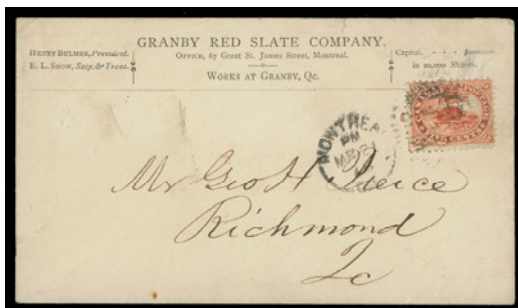 GRANBY RED SLATE COMPANY.
HENRY BULMER, President.
E. L. SNOW, Secy. & Treas.
OFFICE, 67 Great St. James Street, Montreal.
WORKS AT GRANBY, Qc.
Capital, . . . . $100.000
in 20,000 Shares.
MONTREAL
PM
Mr Geo H. Pierce
Richmond
Qc